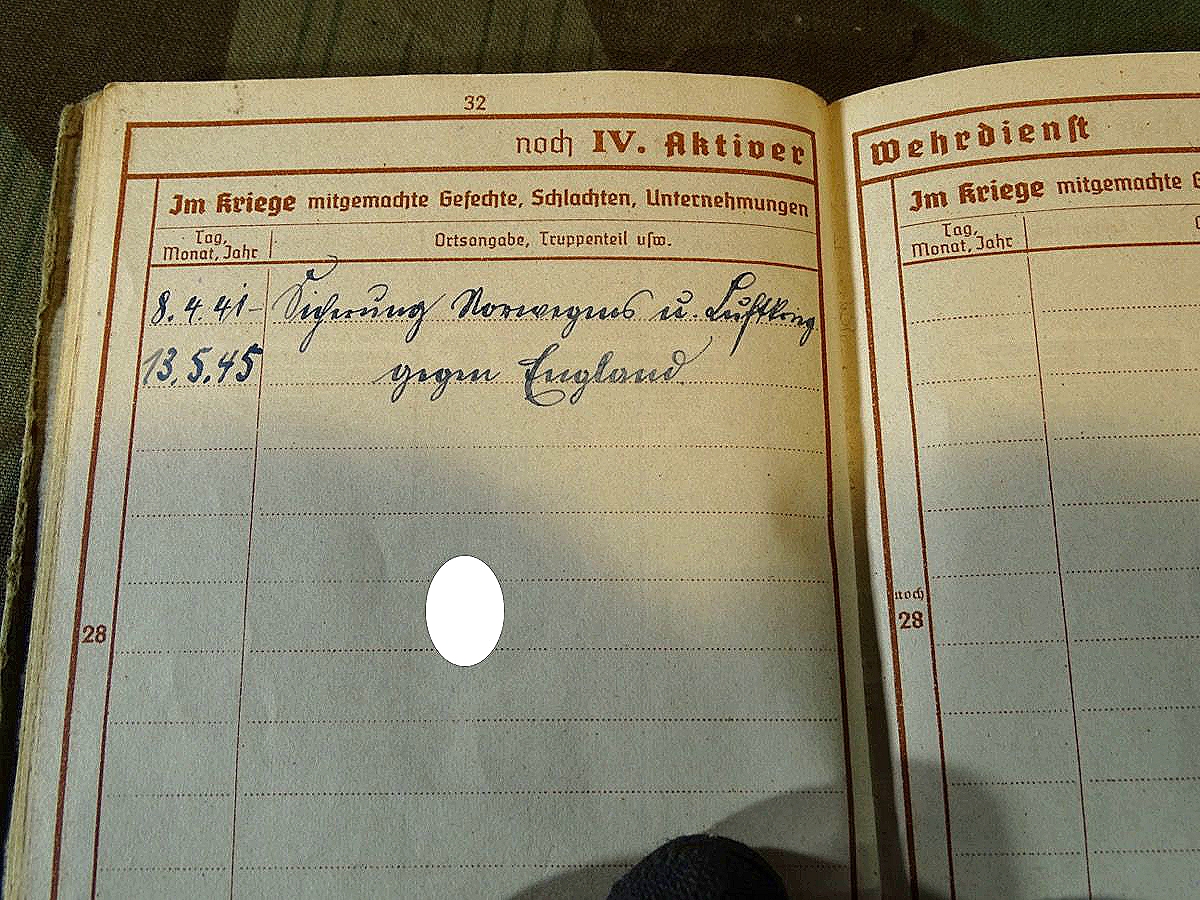 32
noch IV. Aktiver
Im Kriege mitgemachte Gefechte, Schlachten, Unternehmungen
Tag, Monat, Jahr
Ortsangabe, Truppenteil usw.
8.4.41- Sicherung Norwegens u. Luftkrieg
13.5.45 gegen England
28
Wehrdienst
Im Kriege mitgemachte
Tag, Monat, Jahr
noch
28